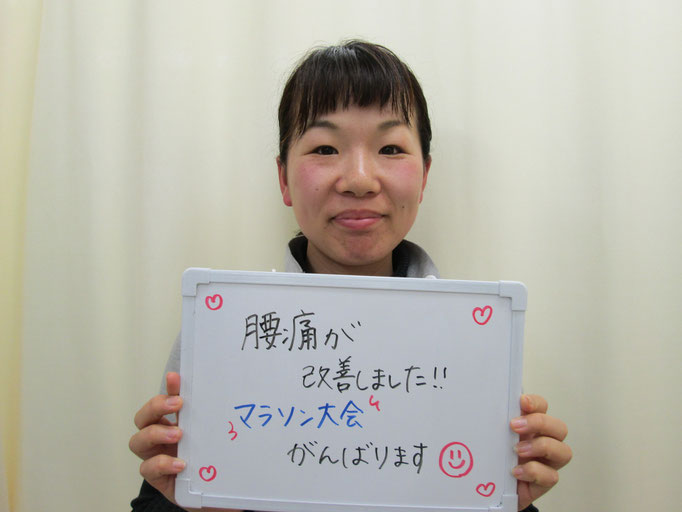 腰痛が
改善しました!!
マラソン大会
がんばります